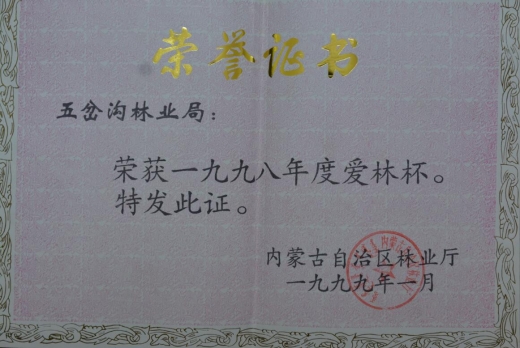 荣誉证书
五岔沟林业局：
荣获一九九八年度爱林杯。
特发此证。
内蒙古自治区林业厅
一九九九年一月